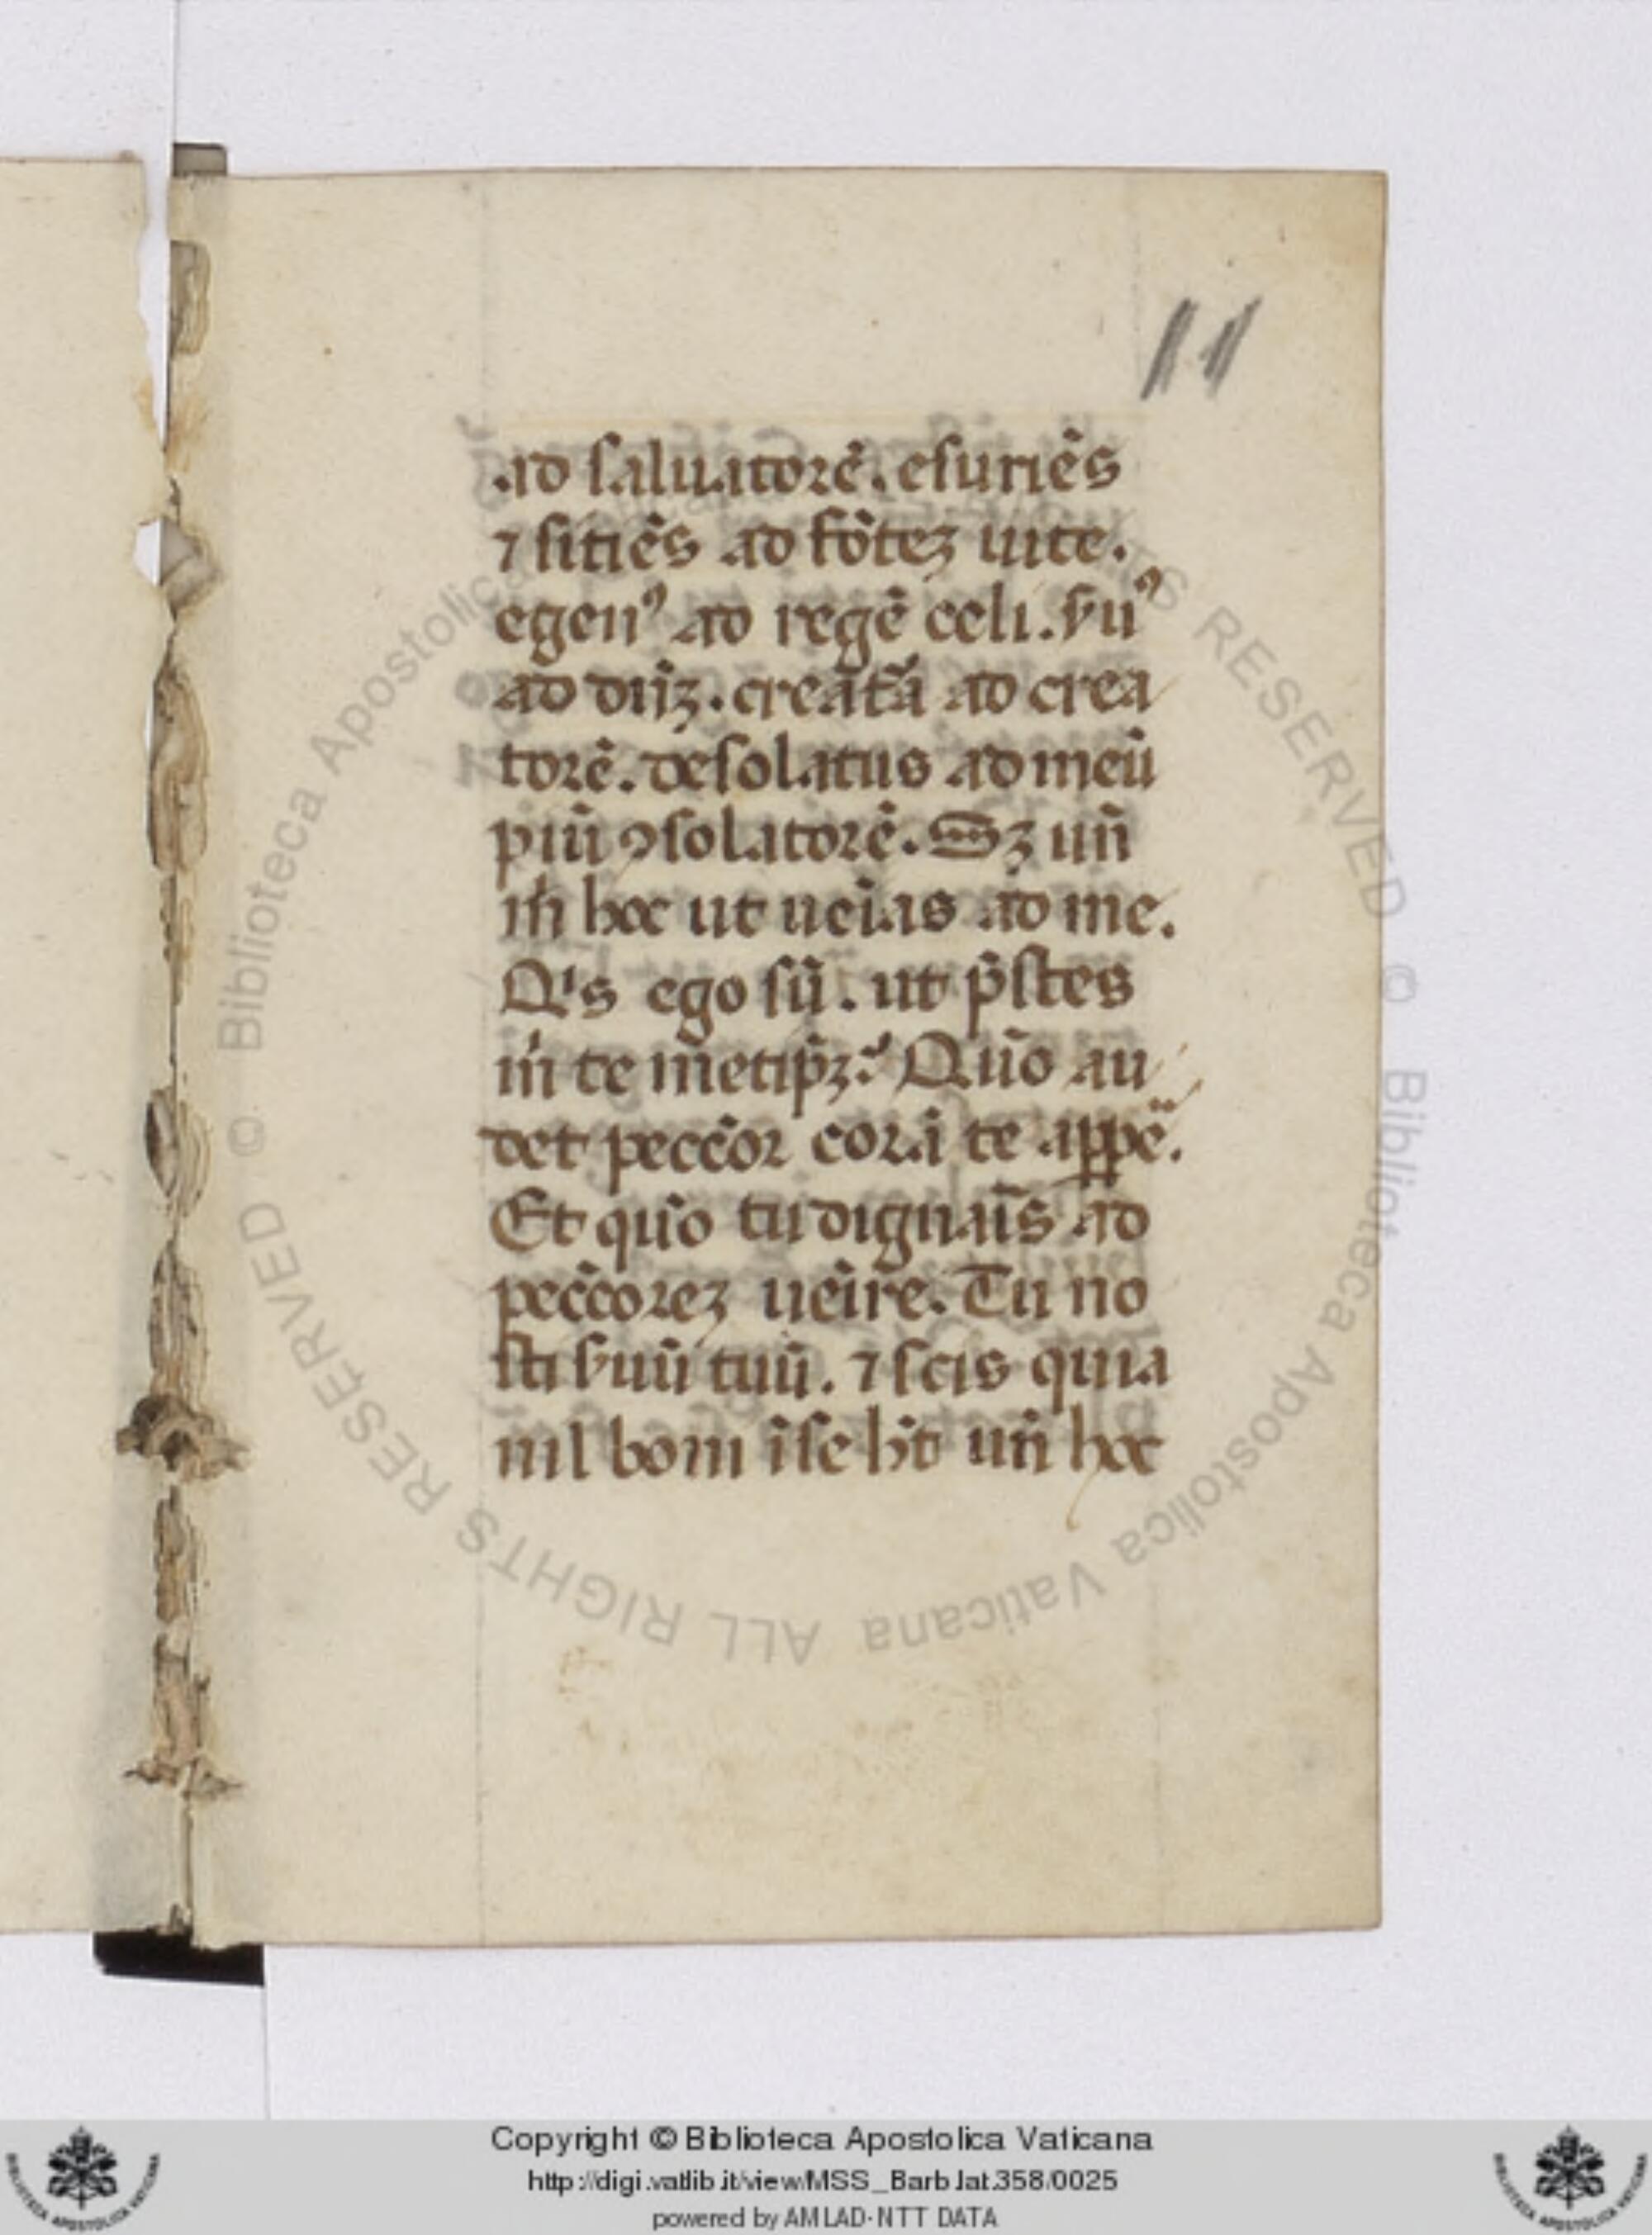 11
ad saluatorē. esuriēs
⁊ sitiēs ad fōteꝫ uite.
egenꝰ ad regē celi. s̄uꝰ
ad dn̄ꝫ. creat̄a ad crea
torē. desolatus ad meū
piū ꝯsolatorē. Sꝫ un̄
m̄ hoc ut ueīas ad me.
Qͥs ego sū. ut p̄stes
m̄ te m̄etip̄ꝫ? Quō au
det peccōr corā te apꝑē.
Et quō tu dignar̄s ad
pecc̄oreꝫ ueīre. Tu no
sti s̄uū tuū. ⁊ scis quia
nil boni ī se h̄t un̄ hoc
© Biblioteca Apostolica Vaticana ALL RIGHTS RESERVED
Copyright © Biblioteca Apostolica Vaticana
http://digi.vatlib.it/view/MSS_Barb.lat.358/0025
powered by AMLAD-NTT DATA